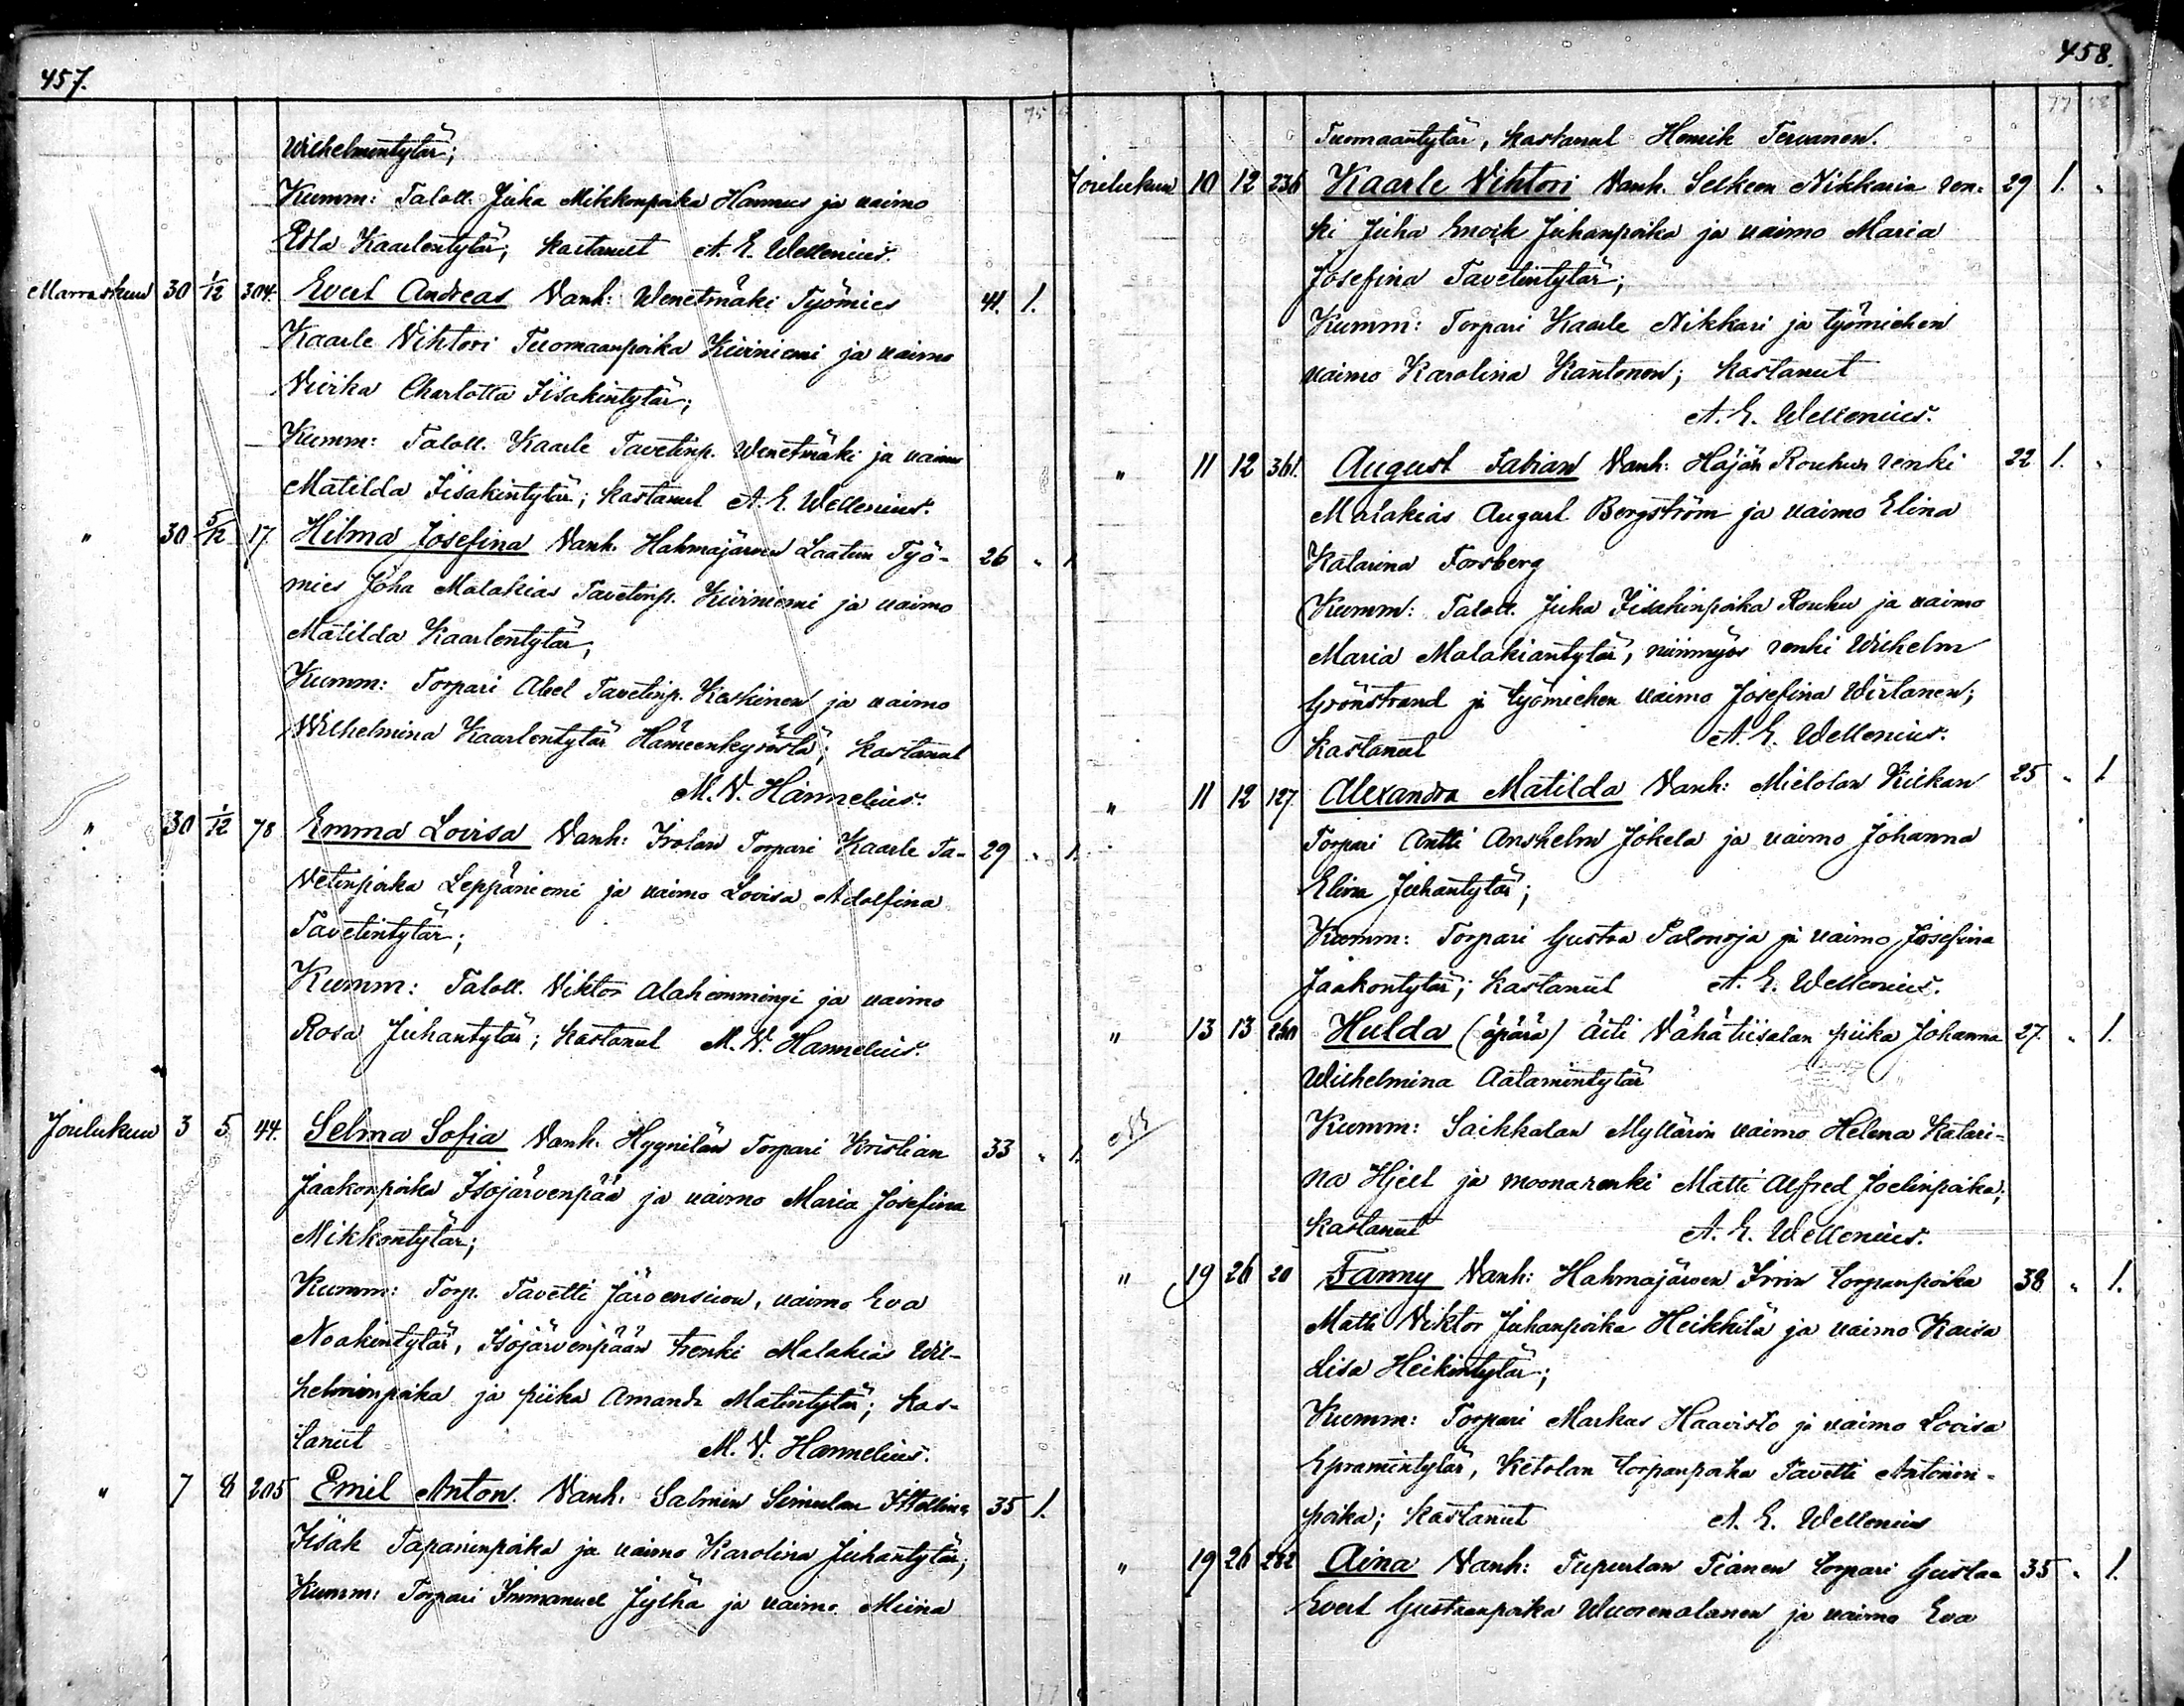 457.
Wilhelmintytär;
Kumm: Taloll. Juha Mikkonpoika Hannus ja vaimo
Kaarlentytär; kastanut A. E. Wellenius.
Marraskuu 30 1/12 304. Evert Andreas Vanh: Wenetmäki Työmies 41. 1.
Kaarle Vihtori Tuomaanpoika Kiviniemi ja vaimo
Charlotta Iisakintytär;
Kumm: Taloll. Kaarle Tavetinp. Wenetmäki ja vaimo
Matilda Iisakintytär; kastanut A. E. Wellenius.
" 30 5/12 17. Hilma Josefina Vanh. Hahmajärven Laatun Työ- 26 " 1
mies Joha Malakias Tavetinp. Kiviniemi ja vaimo
Matilda Kaarlentytär;
Kumm: Torpari Abel Tavetinp. Koskinen ja vaimo
Wilhelmina Kaarlentytär Hämeenkyröstä; kastanut
M. V. Hannelius.
" 30 1/12 78 Emma Lovisa Vanh: Irolan Torpari Kaarle Ta- 29 " 1.
vetinpoika Leppäniemi ja vaimo Lovisa Adolfina
Tavetintytär;
Kumm: Taloll. Viktor Alahemmingi ja vaimo
Rosa Juhantytär; kastanut M. V. Hannelius.
Joulukuu 3 5 44. Selma Sofia Vanh. Hygnilän Torpari Kristian 33 " 1.
Jaakonpoika Isojärvenpää ja vaimo Maria Josefina
Mikkontytär;
Kumm: Torp. Tavetti Järvensivu, vaimo Eva
Noakintytär, Isojärvenpään renki Malakias Wil-
helminpoika ja piika Amanda Matintytär; kas-
tanut M. V. Hannelius.
" 7 8 205 Emil Anton. Vanh: Salmin Simulan 35 1.
Iisak Tapaninpoika ja vaimo Karolina Juhantytär;
Kumm: Torpari Immanuel Jylhä ja vaimo Miina
458.
Tuomaantytär, kastanut Henrik Tervanen.
Joulukuu 10 12 236 Kaarle Vihtori Vanh. Selkeen Nikkaria ren- 29 1. "
ki Juha Enoik Juhanpoika ja vaimo Maria
Josefina Tavetintytär;
Kumm: Torpari Kaarle Nikkari ja työmiehen
vaimo Karolina Kantonen; kastanut
A. E. Wellenius.
" 11 12 361. August Fabian Vanh: Häjän Rouhun renki 22 1. "
Malakias August Bergström ja vaimo Elina
Katarina Forsberg
Kumm: Taloll. Juha Iisakinpoika Rouhu ja vaimo
Maria Malakiantytär, niinmyös renki Wilhelm
Grönstrand ja työmiehen vaimo Josefina Wirtanen;
kastanut A. E. Wellenius.
" 11 12 127 Alexandra Matilda Vanh: Mietolan Kiikan 25 " 1
Torpari Antti Anshelm Jokela ja vaimo Johanna
Elina Juhantytär;
Kumm: Torpari Gustva Palonoja ja vaimo Josefina
Jaakontytär; kastanut A. E. Wellenius.
" 13 13 Hulda (äpärä) äiti Vähätiisalan piika Johanna 27. " 1.
Wilhelmina Aatamintytär
Kumm: Saikkalan Myllärin vaimo Helena Katari-
na Hjelt ja moonarenki Matti Alfred Joelinpoika;
kastanut A. E. Wellenius.
" 19 26 20 Fanny Vanh: Hahmajärven Torpanpoika 38 " 1.
Matti Viktor Juhanpoika Heikkilä ja vaimo Kaisa
Lisa Heikintytär;
Kumm: Torpari Markus Haavisto ja vaimo Lovisa
Epramintytär, Ketolan torpanpoika Tavetti Antonin-
poika; kastanut A. E. Wellenius
" 19 26 282 Aina Vanh: Tupurlan Tianen torpari Gustaa 35 " 1.
Evert Gustaanpoika Wuorenalanen ja vaimo Eva